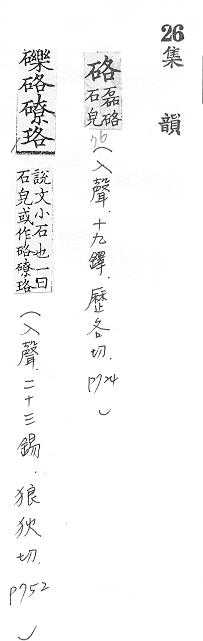 26集韻
硌 磊硌石皃 76(入聲.十九鐸.歷各切.p724)
礫硌礝珞 說文小石也一曰石皃或作硌礝珞 (入聲.二十三錫.狼狄切.p752)